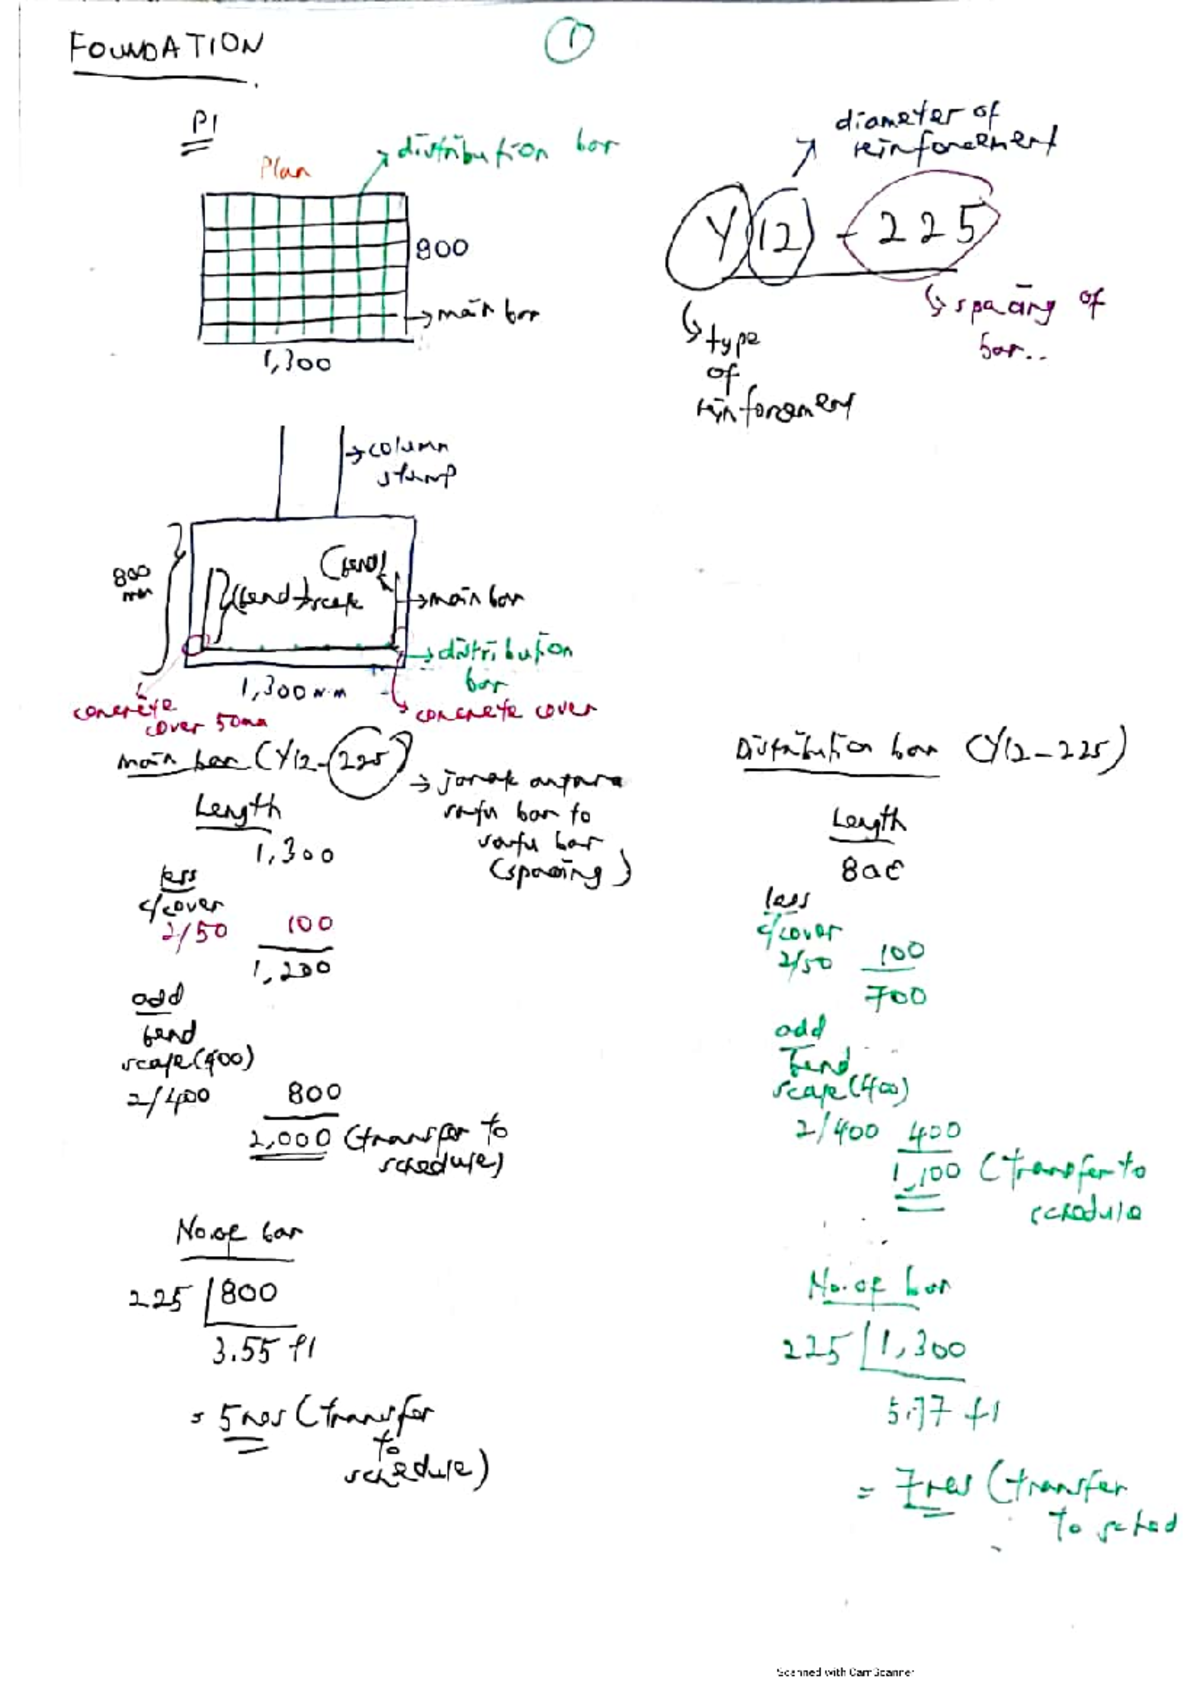 FOUNDATION
1
P1
Plan
distribution bar
800
main bar
1,300
diameter of
reinforcement
Y12 - 225
type
of
reinforcement
spacing of
bar..
column
stump
800
mm
(bend)
(bend)
main bar
distribution
bar
1,300 mm
concrete
cover 50mm
concrete cover
main bar (Y12-225)
jarak antara
satu bar to
satu bar
(spacing)
Length
1,300
less
c/cover
2/50 100
1,200
add
bend
(400)
2/400 800
2,000 (transfer to
schedule)
No.of bar
225 800
3.55 +1
= 5nos (transfer
to
schedule)
Distribution bar (Y12-225)
Length
800
less
c/cover
2/50 100
700
add
bend
(400)
2/400 400
1,100 (transfer to
schedule
No.of bar
225 1,300
5.77 +1
= 7nos (transfer
to sched
Scanned with CamScanner